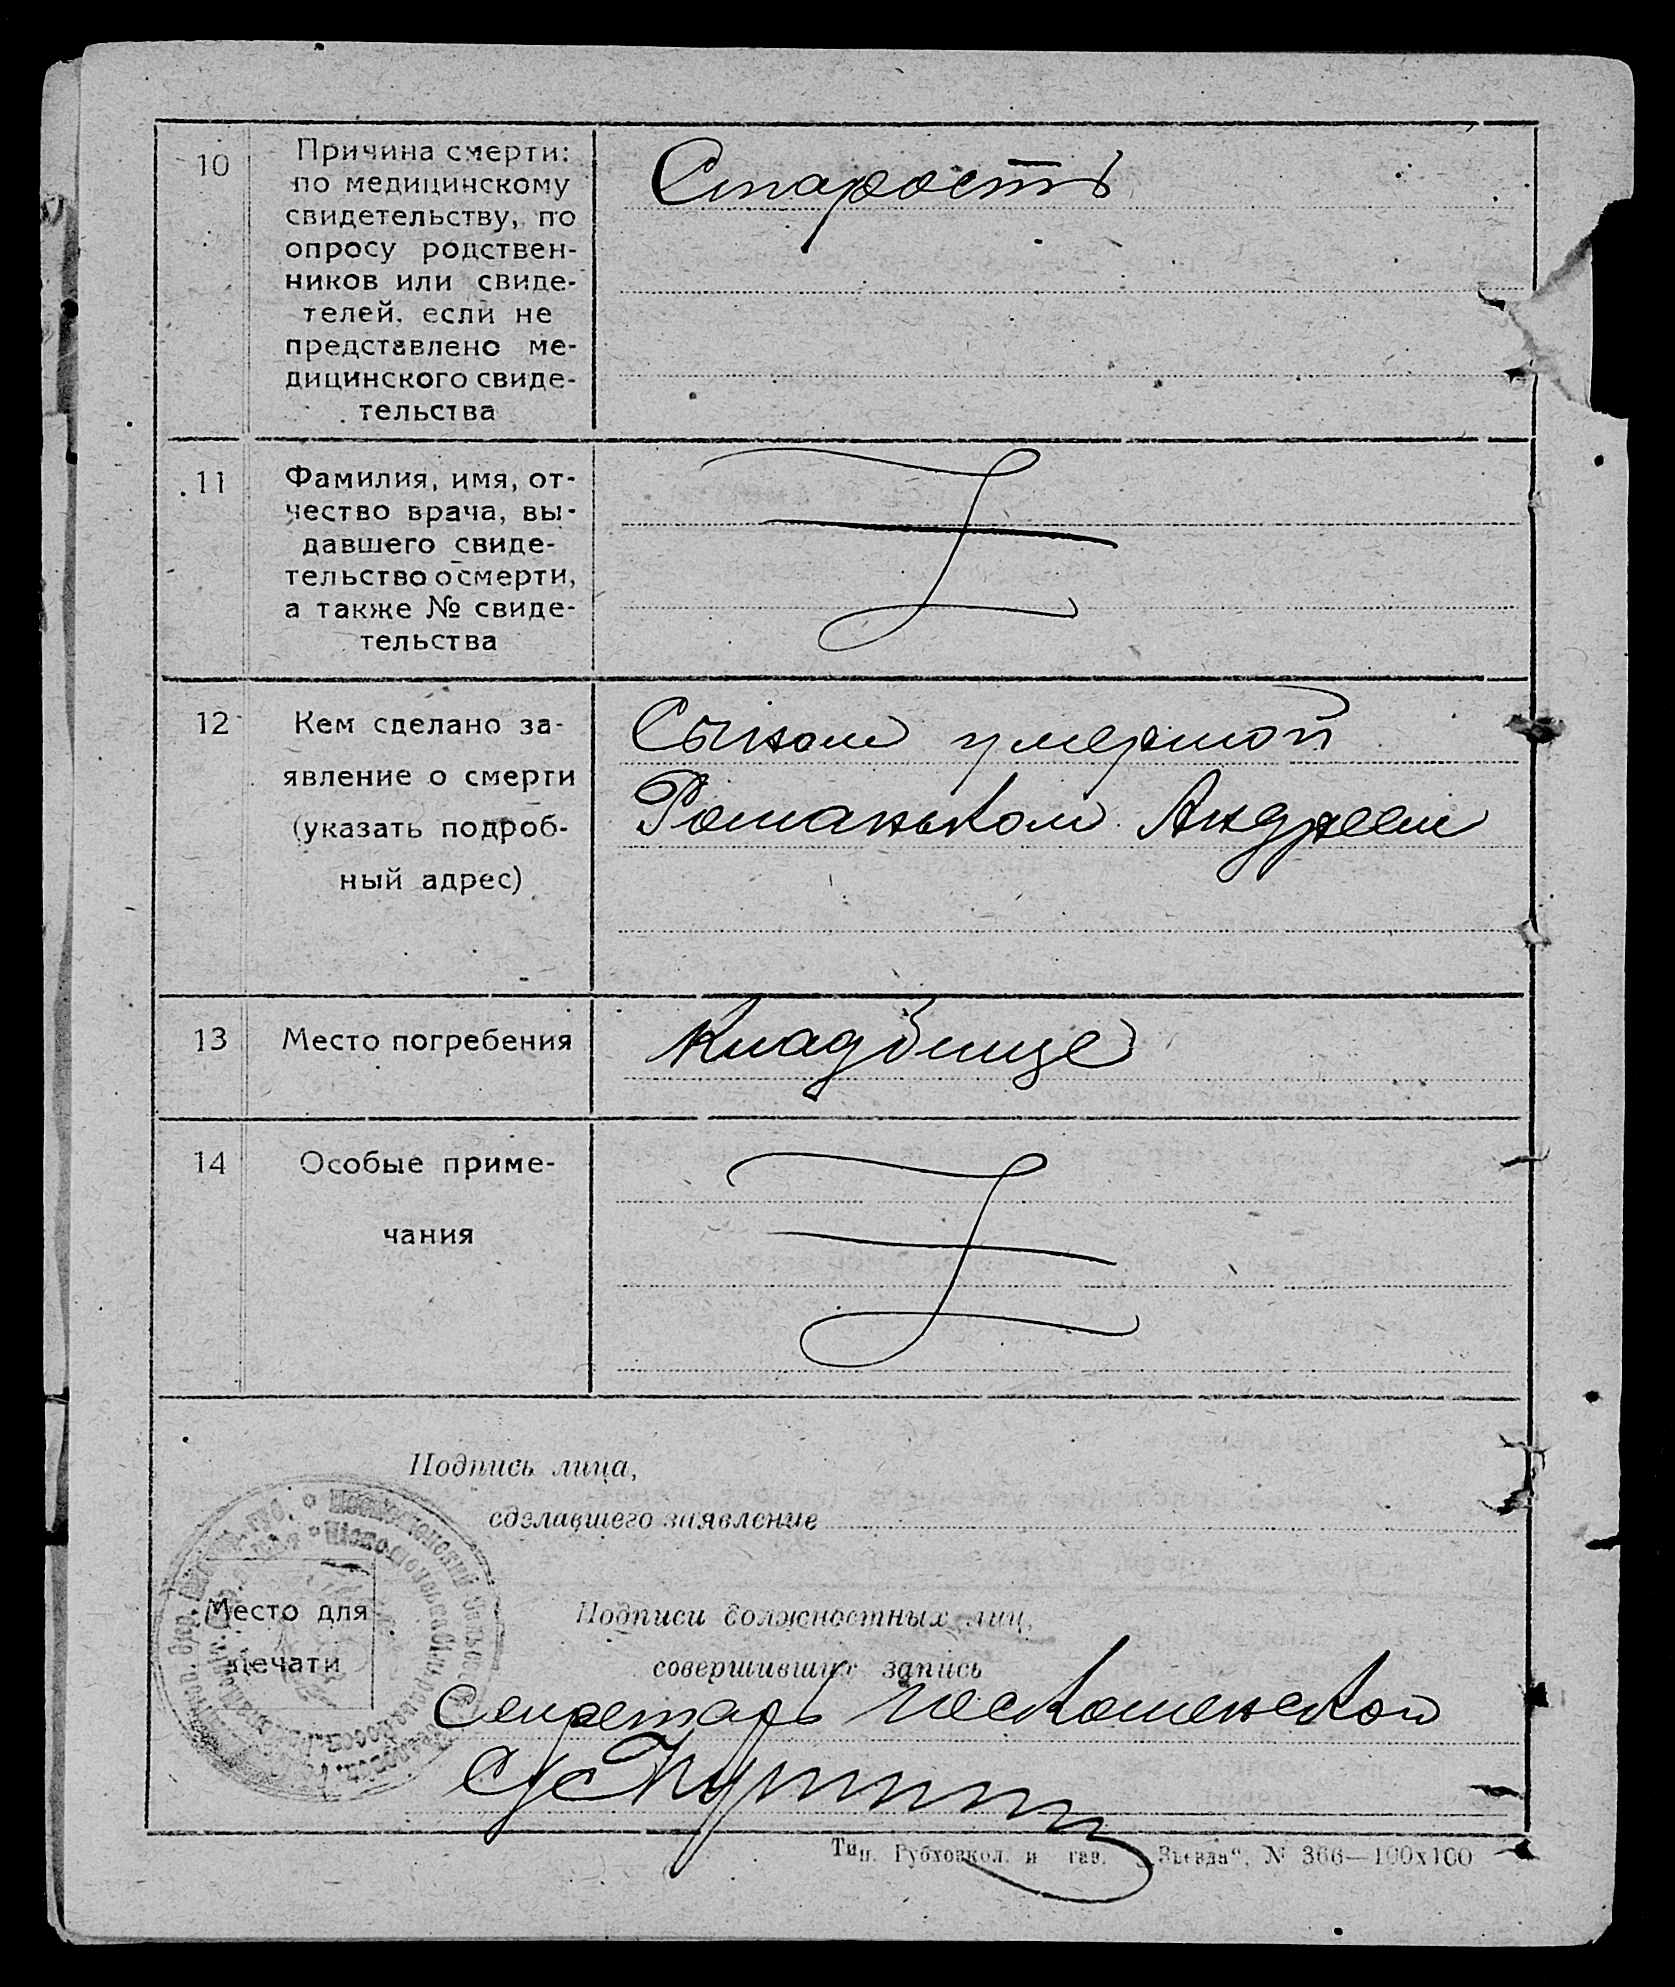 10
Причина смерти:
по медицинскому
свидетельству, по
опросу родствен-
ников или свиде-
телей, если не
представлено ме-
дицинского свиде-
тельства
Старость
11
Фамилия, имя, от-
чество врача, вы-
давшего свиде-
тельство о смерти,
а также № свиде-
тельства
12
Кем сделано за-
явление о смерти
(указать подроб-
ный адрес)
Сыном умершой
Романьком Андреем
13
Место погребения
Кладбище
14
Особые приме-
чания
Подпись лица,
сделавшего заявление
Место для
печати
Подписи должностных лиц,
совершивших запись
Секретарь
Тип. Губховкол. и газ. „Звезда“, № 366—100х100